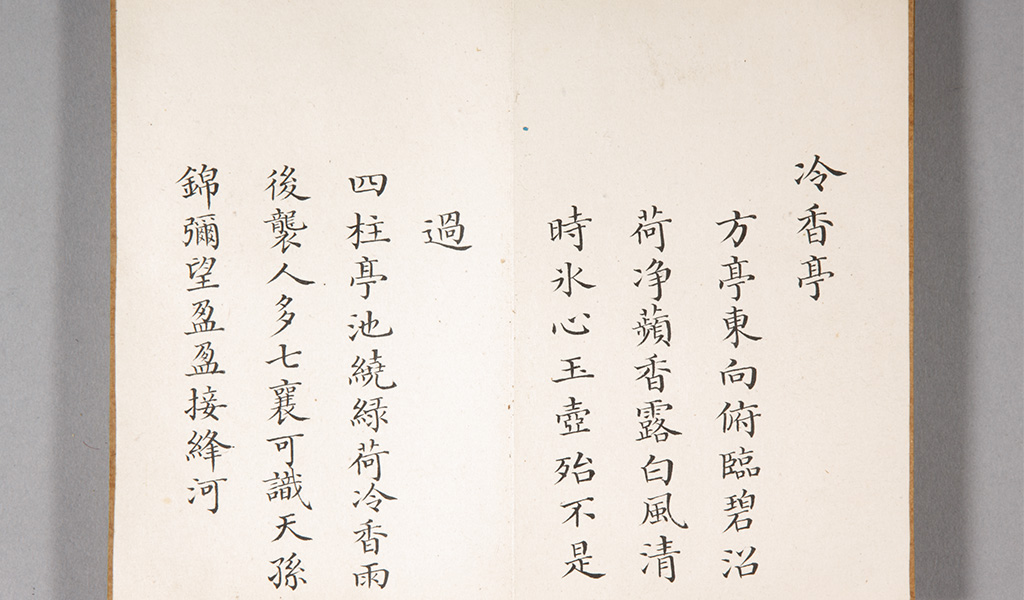 冷香亭
方亭東向俯臨碧沼
荷净蘋香露白風清
時氷心玉壺殆不是
過
四柱亭池繞緑荷冷香雨
後襲人多七襄可識天孫
錦彌望盈盈接絳河